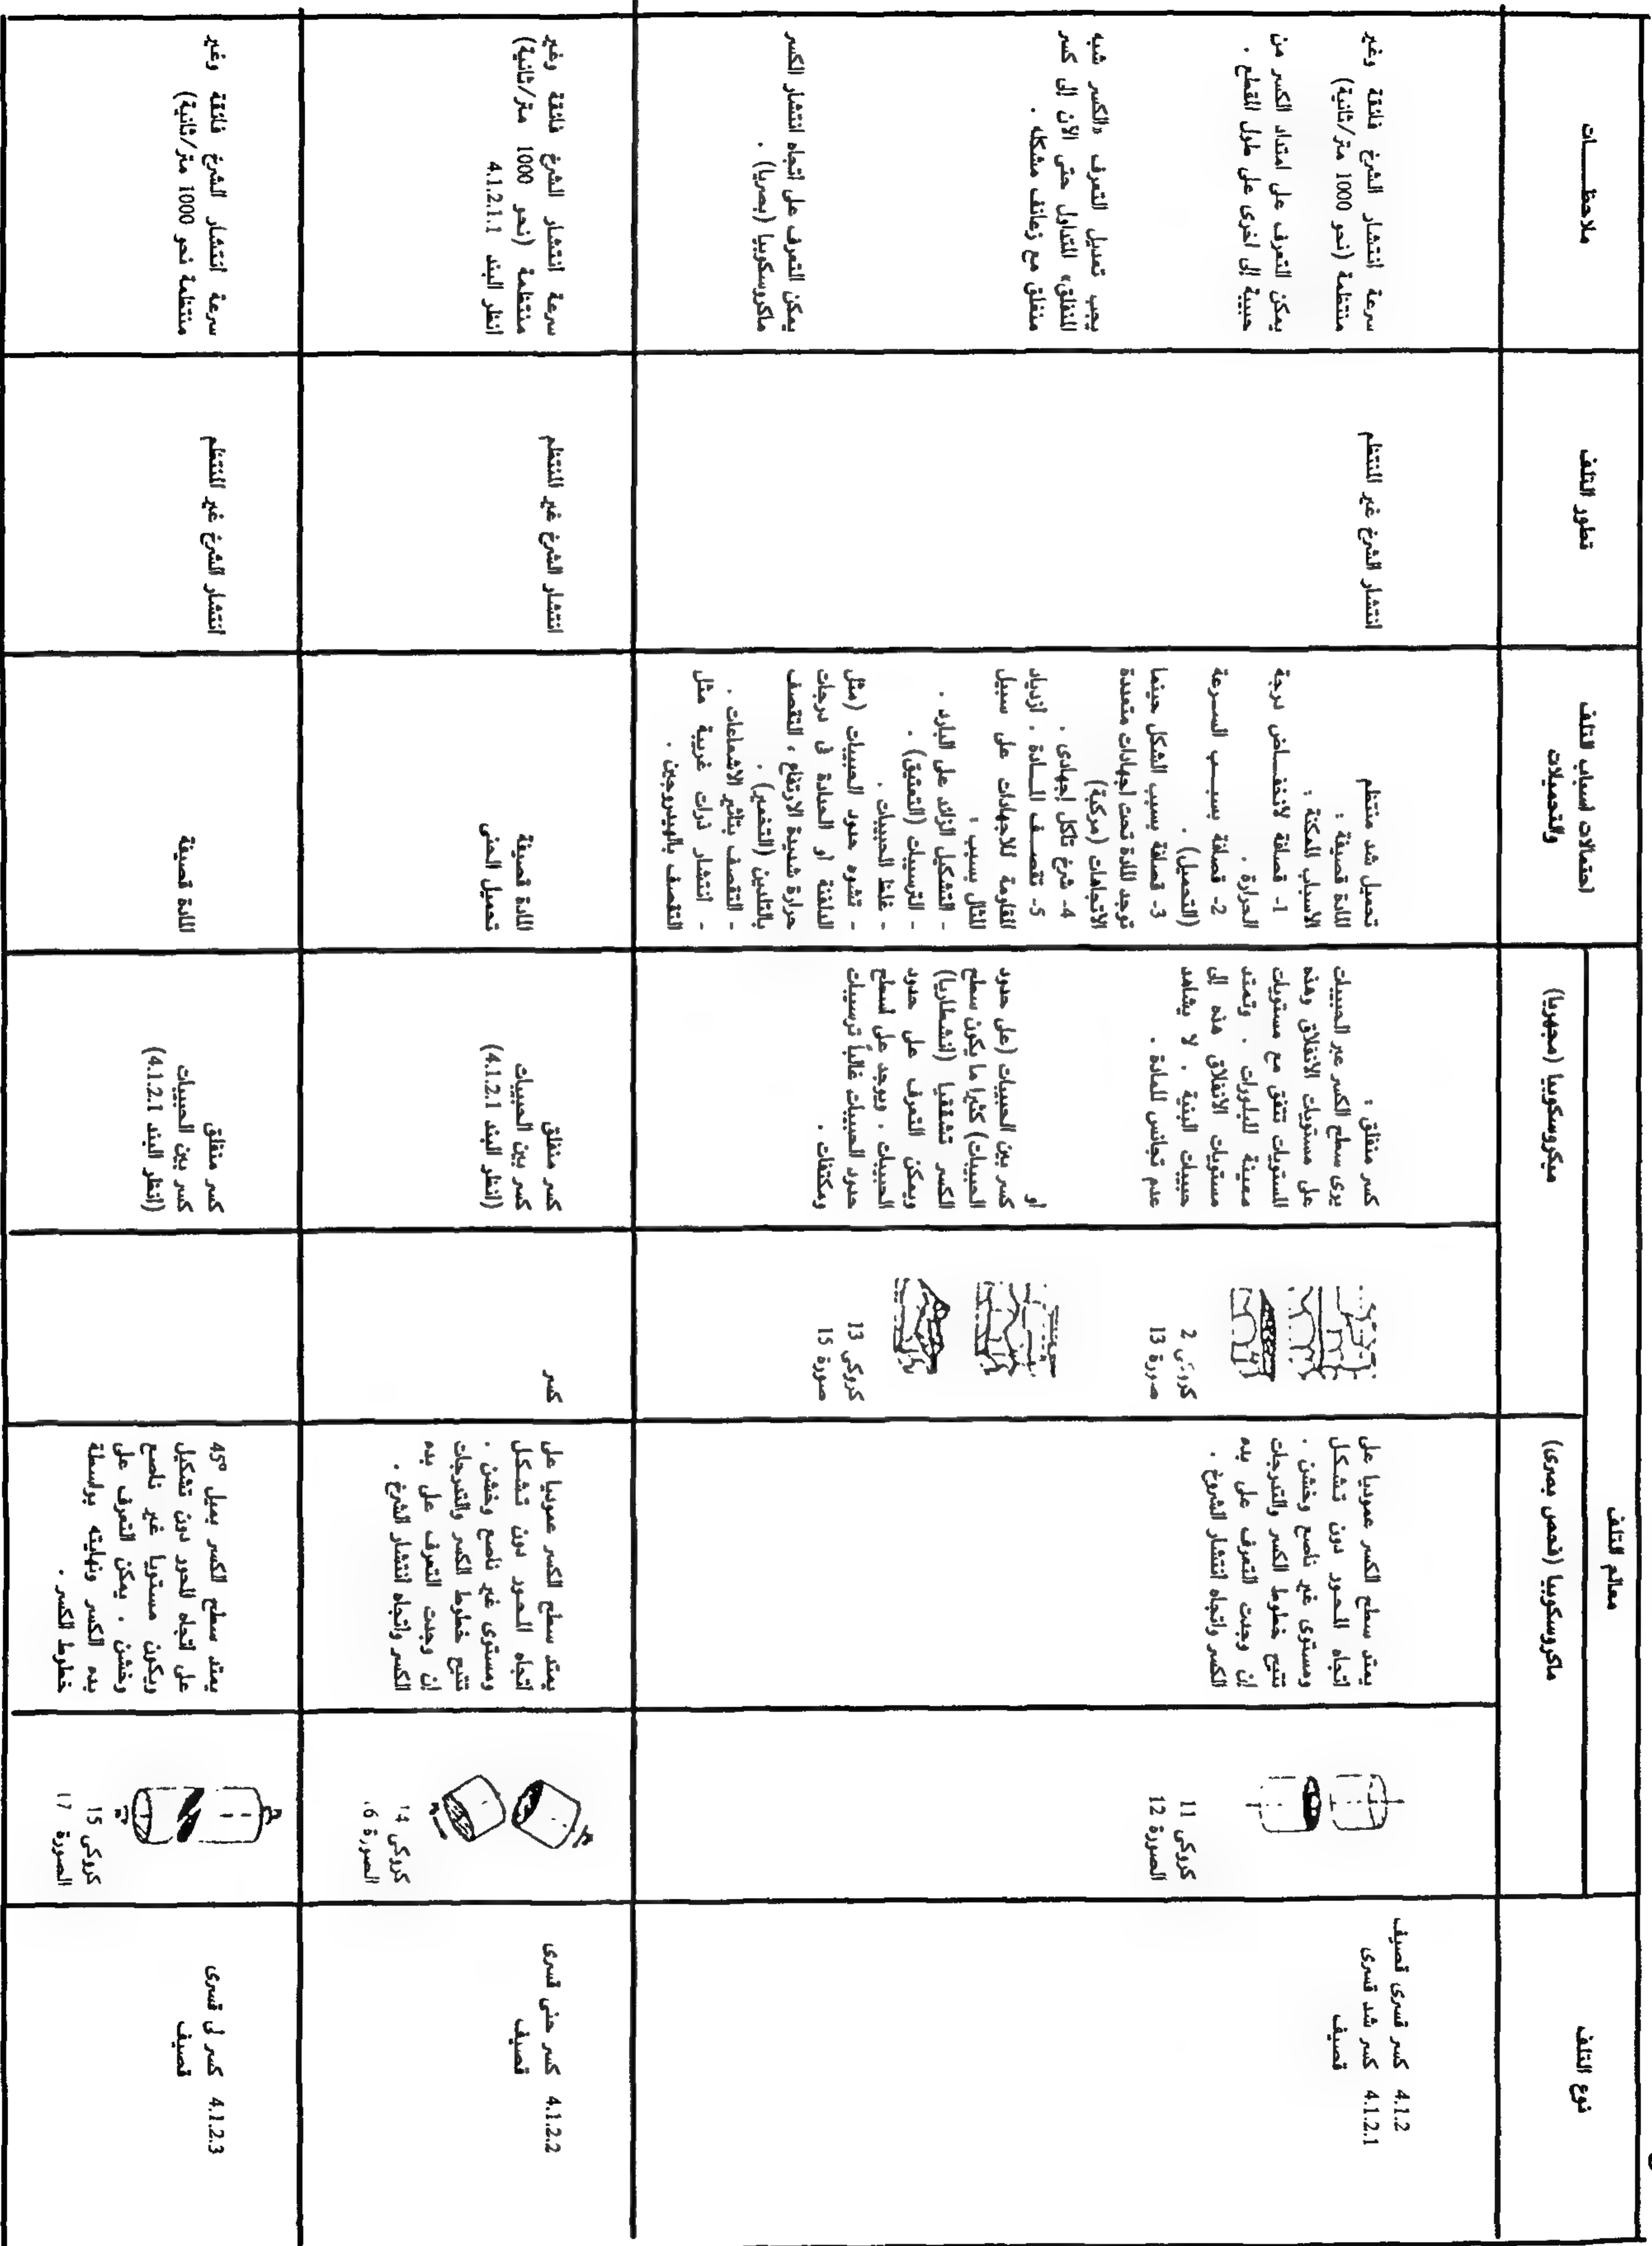 نوع التلف
معالم التلف
ماكروسكوبيا (فحص بصرى)
ميكروسكوبيا (مجهريا)
احتمالات اسباب التلف
والتحميلات
تطور التلف
ملاحظـــــات
4.1.2 كسر قسرى قصيف
4.1.2.1 كسر شد قسرى
قصيف
كروكى 11
الصورة 12
يمتد سطح الكسر عموديا على
اتجاه المحور دون تشكل
ومستوى غير ناصع وخشن .
تتيح خطوط الكسر والتدرجات
إن وجدت التعرف على بدء
الكسر واتجاه انتشار الشروخ .
2
صورة 13
كروكى 13
صورة 15
كسر منفلق :
يرى سطح الكسر عبر الحبيبات
على مستويات الانفلاق وهذه
المستويات تتفق مع مستويات
معينة للبلورات . وتمتد
مستويات الانفلاق هذه إلى
حبيبات البنية . لا يشاهد
عدم تجانس للمادة .
أو
كسر بين الحبيبات (على حدود
الحبيبات) كثيرا ما يكون سطح
الكسر تشققيا (انشطاريا)
ويمكن التعرف على حدود
الحبيبات . ويوجد على اسطح
حدود الحبيبات غالباً ترسيبات
ومكتنفات .
تحميل شد منتظم
المادة قصيفة :
الاسباب الممكنة :
1- قصافة لانخفـــاض درجة
الحرارة .
2- قصافة بسبـــب السـرعة
(التحميل) .
3- قصافة بسبب الشكل حينما
توجد المادة تحت اجهادات متعددة
الاتجاهات (مركبة)
4- شرخ تآكل إجهادى .
5- تقصـــف المـــادة . ازدياد
المقاومة للاجهادات على سبيل
المثال بسبب :
- التشكيل الزائد على البارد .
- الترسيبات (التعتيق) .
- غلظ الحبيبات .
- تشوه حدود الحبيبات (مثل
الدلفنة أو الحدادة فى درجات
حرارة شديدة الارتفاع ، التقصف
بالتلدين (التخمير) .
- التقصف بتأثير الاشعاعات .
- انتشار ذرات غريبة مثل
التقصف بالهيدروجين .
انتشار الشرخ غير المنتظم
سرعة انتشار الشرخ فائقة وغير
منتظمة (نحو 1000 متر/ثانية)
يمكن التعرف على امتداد الكسر من
حبيبة إلى اخرى على طول المقطع .
يجب تعديل التعرف «الكسر شبه
المنفلق» المتداول حتى الآن إلى كسر
منفلق مع زعانف مشكلة .
يمكن التعرف على اتجاه انتشار الكسر
ماكروسكوبيا (بصريا) .
4.1.2.2 كسر حنى قسرى
قصيف
كروكى 14
الصورة 16
يمتد سطح الكسر عموديا على
اتجاه المحور دون تشكل
ومستوى غير ناصع وخشن .
تتيح خطوط الكسر والتدرجات
إن وجدت التعرف على بدء
الكسر واتجاه انتشار الشرخ .
كسر
كسر منفلق
كسر بين الحبيبات
(انظر البند 4.1.2.1)
المادة قصيفة
تحميل الحنى
انتشار الشرخ غير المنتظم
سرعة انتشار الشرخ فائقة وغير
منتظمة (نحو 1000 متر/ثانية)
انظر البند 4.1.2.1.1
4.1.2.3 كسر لى قسرى
قصيف
كروكى 15
الصورة 17
يمتد سطح الكسر بميل 45°
على اتجاه المحور دون تشكيل
ويكون مستويا غير ناصع
وخشن . يمكن التعرف على
بدء الكسر ونهايته بواسطة
خطوط الكسر .
كسر منفلق
كسر بين الحبيبات
(انظر البند 4.1.2.1)
المادة قصيفة
انتشار الشرخ غير المنتظم
سرعة انتشار الشرخ فائقة وغير
منتظمة نحو 1000 متر/ثانية)